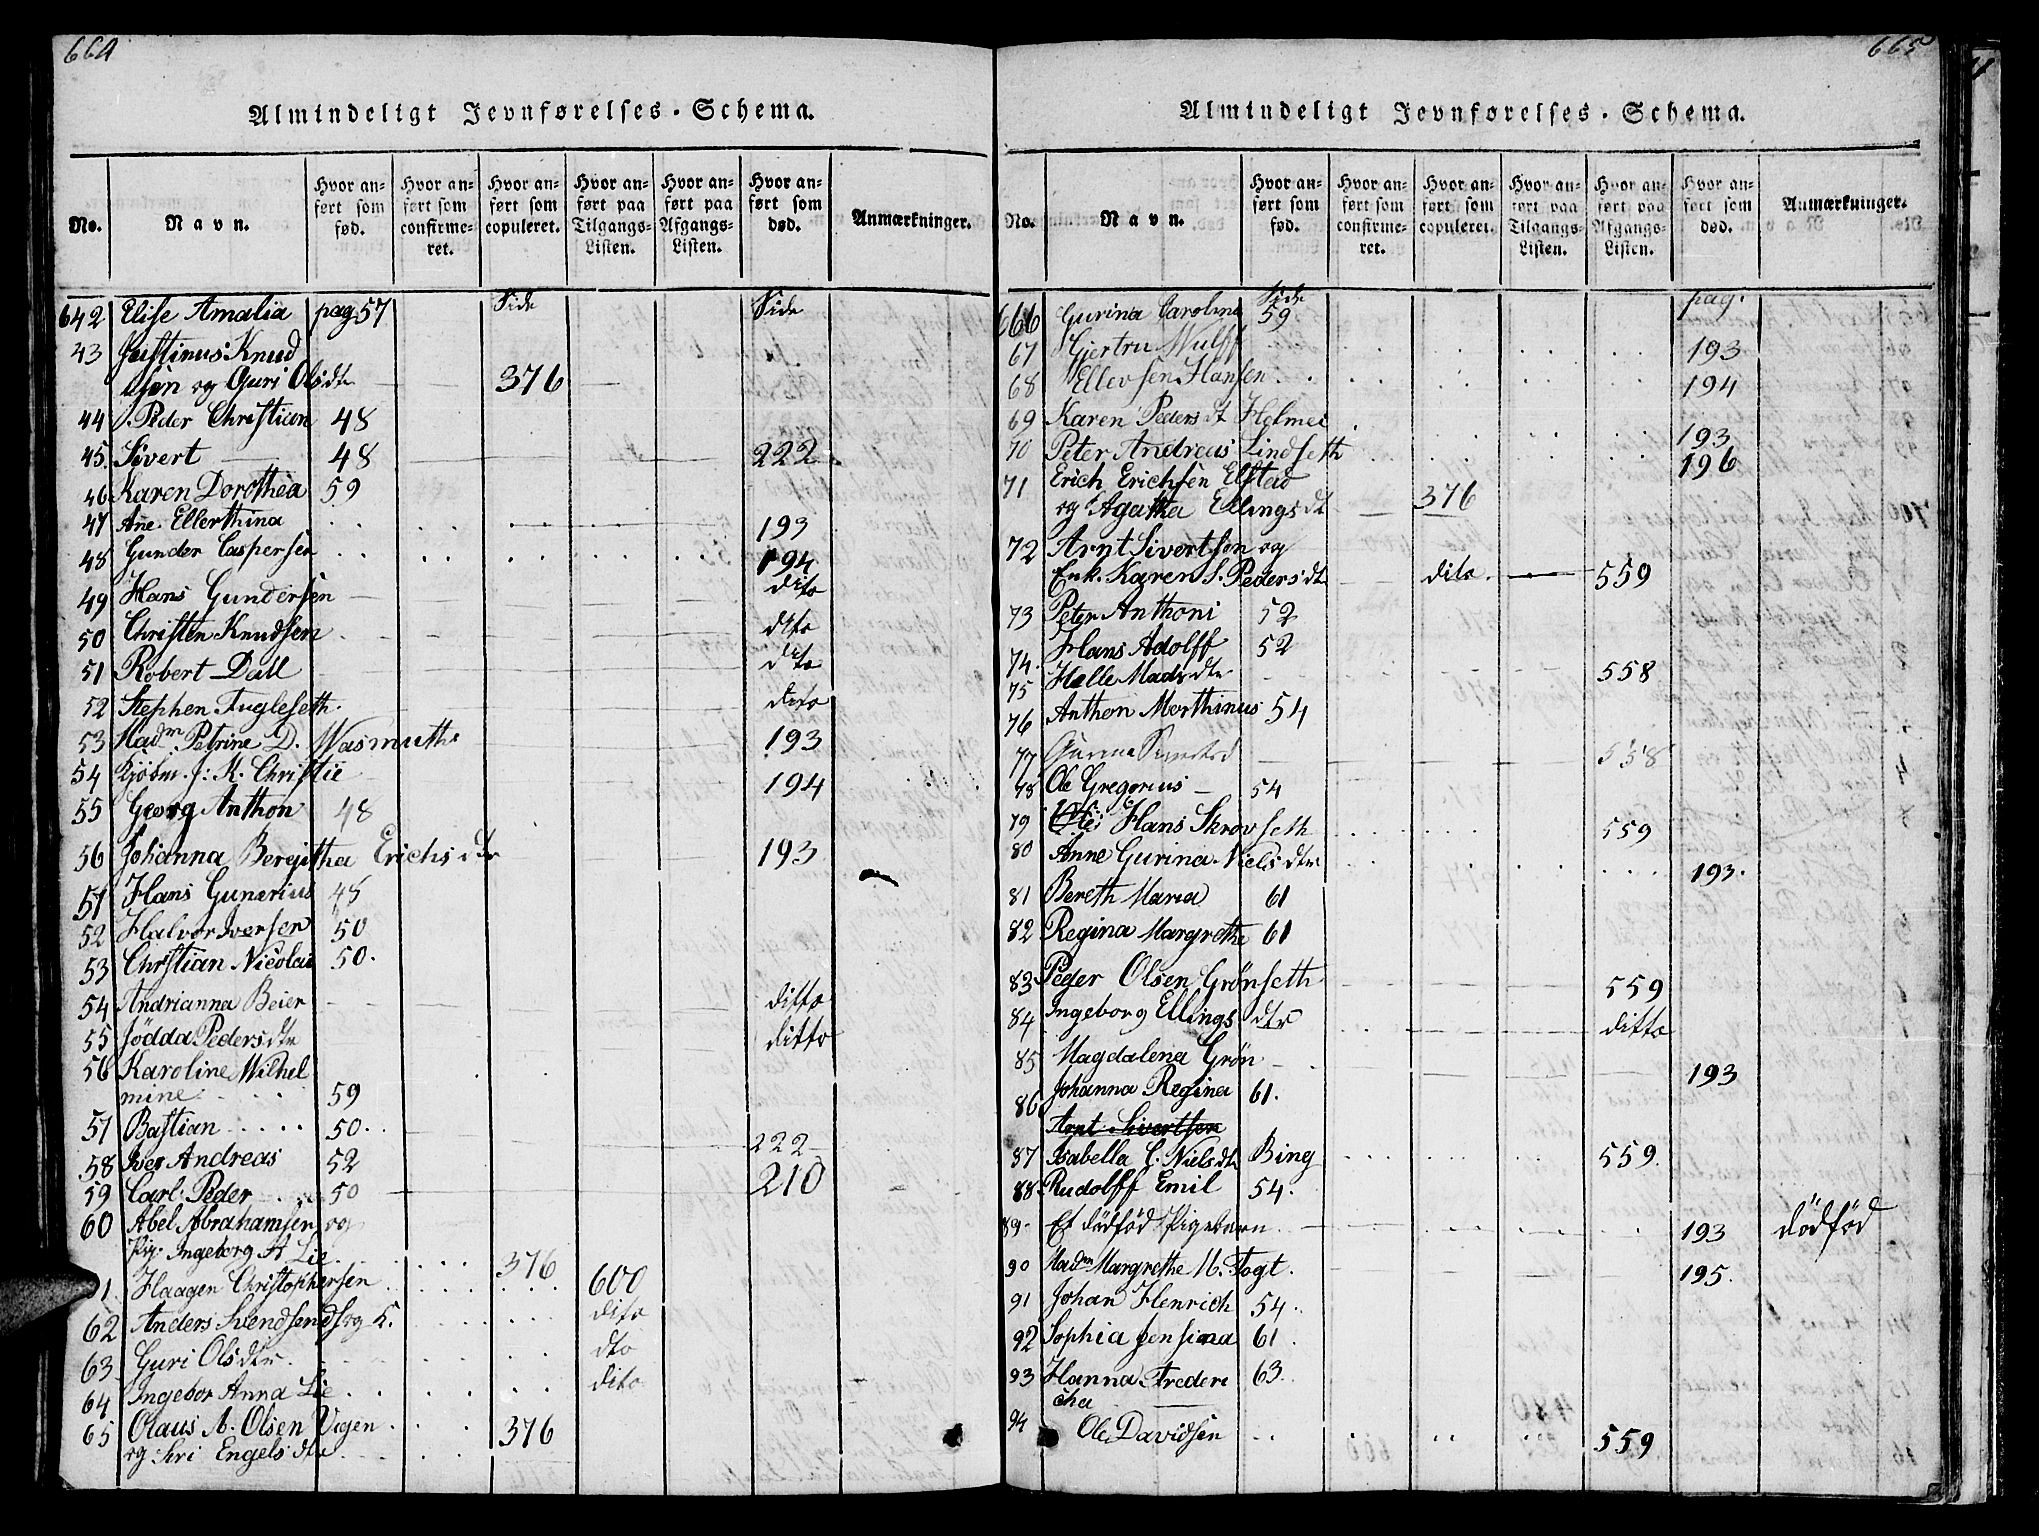 664
Almindeligt Jevnførelses-Schema.
No. Navn. Hvor anført som fød. Hvor anført som confirmeret. Hvor anført som copuleret. Hvor anført paa Tilgangs-Listen. Hvor anført paa Afgangs-Listen. Hvor anført som død. Anmærkninger.
642 Elise Amalia pag 57 Side Side
43 Justinus Knud
søn og Guri Olsdtr 376
44 Peder Christian 48
45. Sivert 48 222
46 Karen Dorothea 59
47 Ane Ellerthina 193
48 Gunder Caspersen 194
49 Hans Gundersen dito
50 Christen Knudsen dito
51 Robert Dall dito
52 Stephen Fugleseth. dito
53 Madm. Petrine D. Wasmuth 193
54 Kjøbm. J. K. Christie 194
55 Georg Anthon 48
56 Johanna Bergitha Erichsdtr 193
51 Hans Gunerius 48
52 Halvor Iversen 50
53 Christian Nicolai 50.
54 Andrianna Beier ditto
55 Jødda Pedersdtr ditto
56 Karoline Wilhel
mine 59
57 Bastian 50. 222
58 Iver Andreas 52
59 Carl Peder 50 210
60 Abel Abrahamsen og
Pig. Ingeborg A Lie 376
61. Haagen Christophersen 600
62 Anders Svendsen dito
63 Guri Olsdtr. dto
64 Ingebor Anna Lie dito
65 Olaus A. Olsen Vigen 376
og Siri Engelsdtr
665
Almindeligt Jevnførelses-Schema.
No. Navn. Hvor anført som fød. Hvor anført som confirmeret. Hvor anført som copuleret. Hvor anført paa Tilgangs-Listen. Hvor anført paa Afgangs-Listen. Hvor anført som død. Anmærkninger.
666 Gurina Carolina Side 59 pag.
67 Gjertru Wulff 193
68 Ellevsen Hansen 194
69 Karen Pedersdt Holmei 193
70 Peter Andreas Lindseth 196
71 Erich Erichsen Elstad
og Agatha Ellingsdt 376
72 Arnt Sivertsen og
Enk. Karen S. Pedersdtr dito. 559
73 Peter Anthoni 52
74. Hans Adolff 52
75 Helle Madsdtr 558
76 Anthon Morthinus 54
77 558
78 Ole Gregorius 54
79 Hans Skrovseth 559
80 Anne Gurina Nielsdtr 193.
81 Bereth Maria 61
82 Regina Margrethe 61
83 Peder Olsen Grønseth 559
84 Ingeborg Ellingsdtr ditto
85 Magdalena Grøn 193
86 Johanna Regina 61.
Arnt Sivertsen
87 Isabella C. Nielsdtr Bing 559.
88 Rudolff Emil 54.
89 Et dødfød Pigebarn 193 dødfød
90 Madm Margrethe M. Fogt. 195.
91 Johan Henrich 54.
92 Sophia Jensina 61.
93 Hanna Frederi 63.
cha
94 Ole Davidsen 559